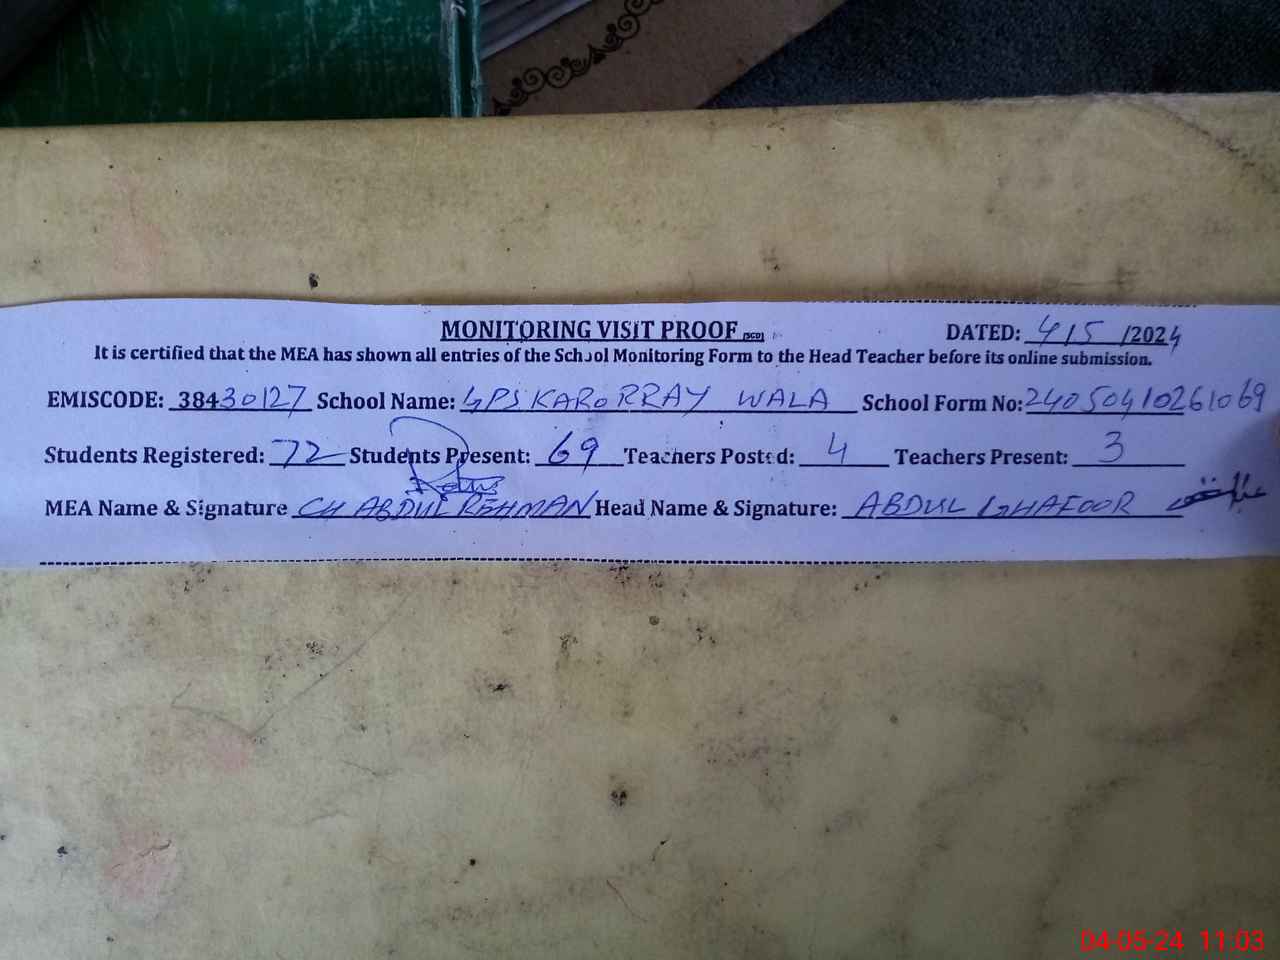 MONITORING VISIT PROOF (SGD) DATED: 4/5/2024
It is certified that the MEA has shown all entries of the School Monitoring Form to the Head Teacher before its online submission.
EMISCODE: 38430127 School Name: GPS KARORRAY WALA School Form No: 24050410261069
Students Registered: 72 Students Present: 69 Teachers Posted: 4 Teachers Present: 3
MEA Name & Signature CH ABDUL REHMAN Head Name & Signature: ABDUL GHAFOOR
04-05-24 11:03